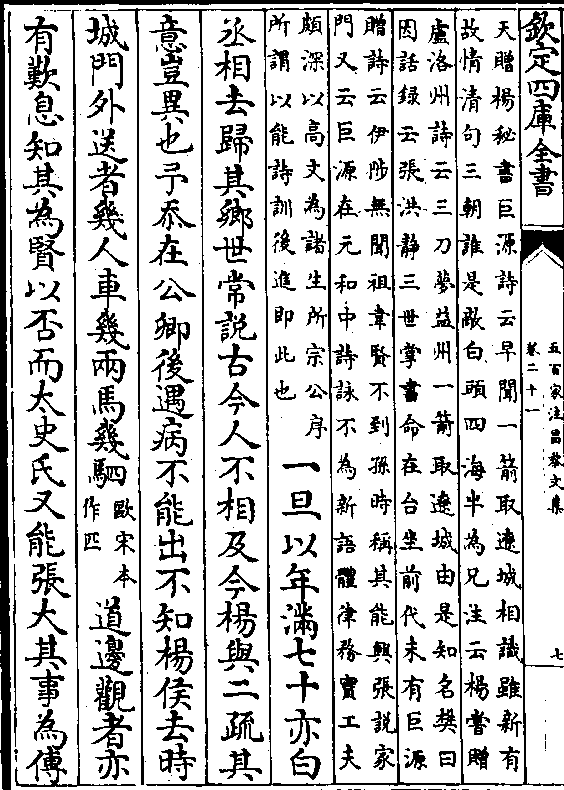 欽定四庫全書
五百家注昌黎文集
卷二十一
七
天贈楊秘書巨源詩云早聞一箭取遼城相識雖新有
故情清句三朝誰是敵白頭四海半為兄注云楊嘗贈
盧洛州詩云三刀夢益州一箭取遼城由是知名樊曰
因話録云張洪静三世掌書命在台坐前代未有巨源
贈詩云伊陟無聞祖韋賢不到孫時稱其能興張説家
門又云巨源在元和中詩詠不為新語體律務實工夫
頗深以高文為諸生所宗公序
所謂以能詩訓後進即此也
一旦以年滿七十亦白
丞相去歸其鄉世常説古今人不相及今楊與二疏其
意豈異也予忝在公卿後遇病不能出不知楊侯去時
城門外送者幾人車幾兩馬幾駟歐宋本作匹道邊觀者亦
有歎息知其為賢以否而太史氏又能張大其事為傅